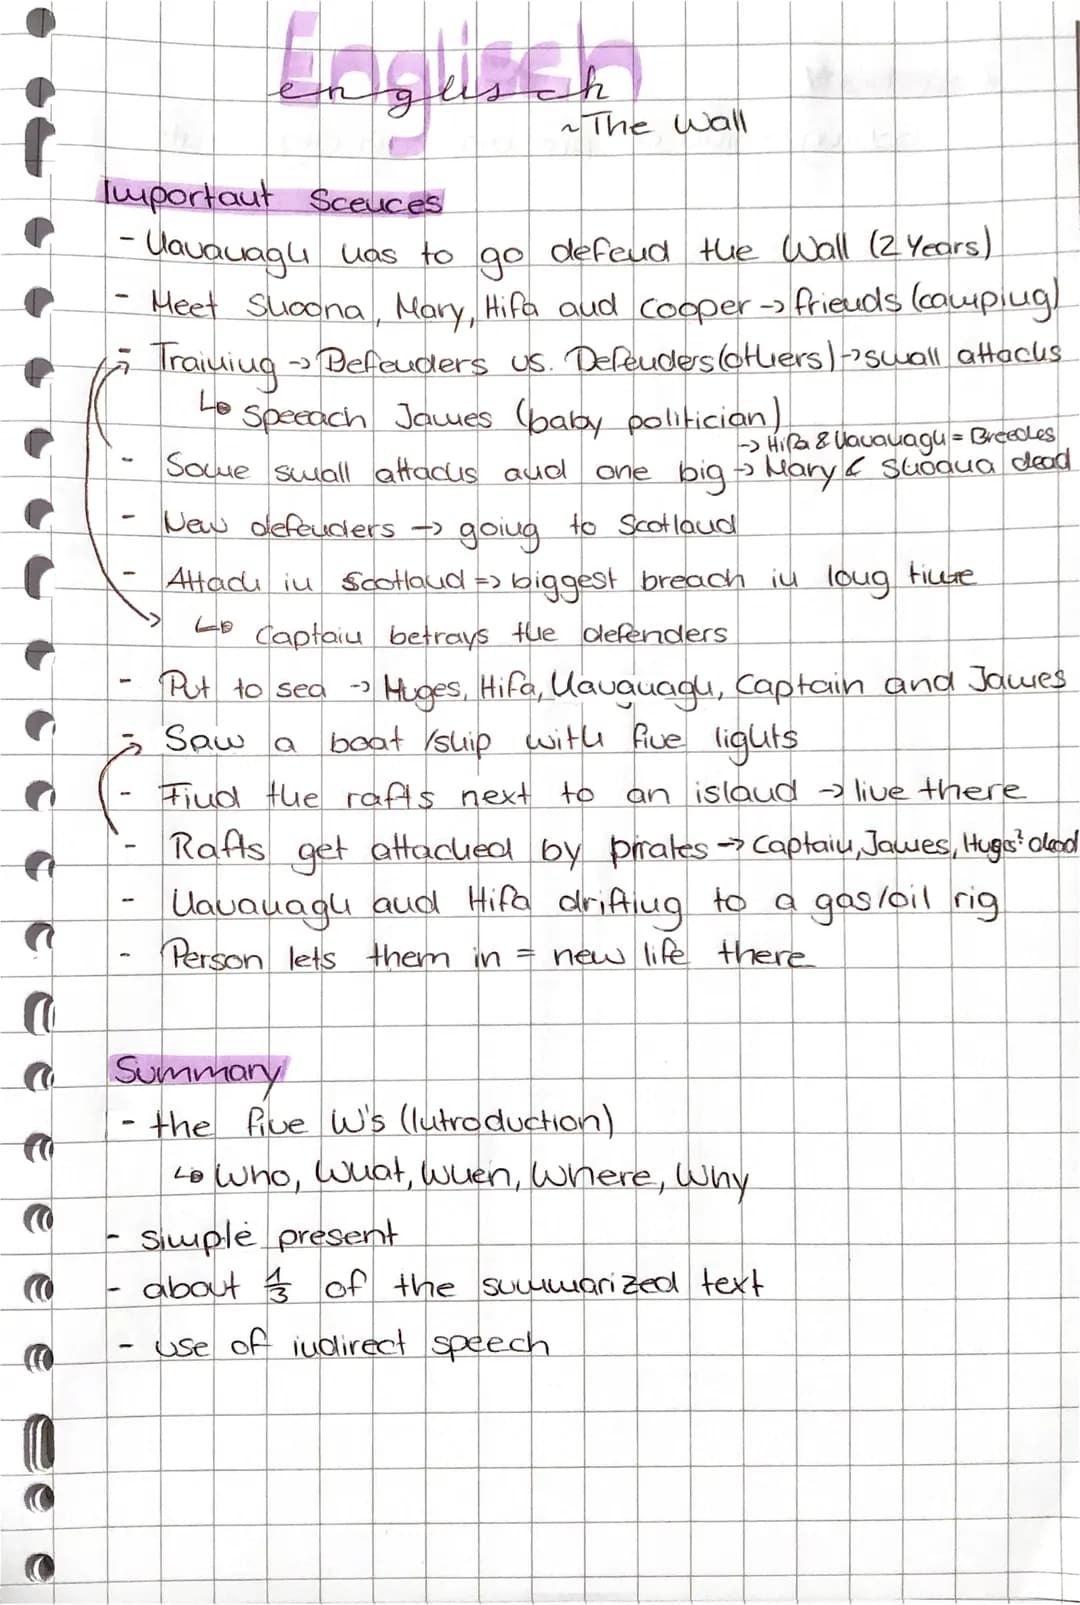 Englisch
englisch
~The Wall
Important Scences
- Kavanagh has to go defend the Wall (2 Years)
- Meet Shoona, Mary, Hifa and Cooper -> friends (camping)
- Training -> Defenders vs. Defenders (others) -> small attacks
↳ Speeach James (baby politician)
-> Hifa & Kavanagh = Breeders
- Some small attacks and one big -> Mary & Shoona dead
- New defenders -> going to Scotland
- Attack in Scotland => biggest breach in long time
↳ Captain betrays the defenders
- Put to sea -> Huges, Hifa, Kavanagh, Captain and James
- Saw a boat /ship with five lights
- Find the rafts next to an island -> live there
- Rafts get attacked by pirates -> Captain, James, Huges? dead
- Kavanagh and Hifa drifting to a gas/oil rig
- Person lets them in = new life there
Summary
- the five W's (Introduction)
↳ Who, What, When, Where, Why
- simple present
- about 1/3 of the summarized text
- use of indirect speech